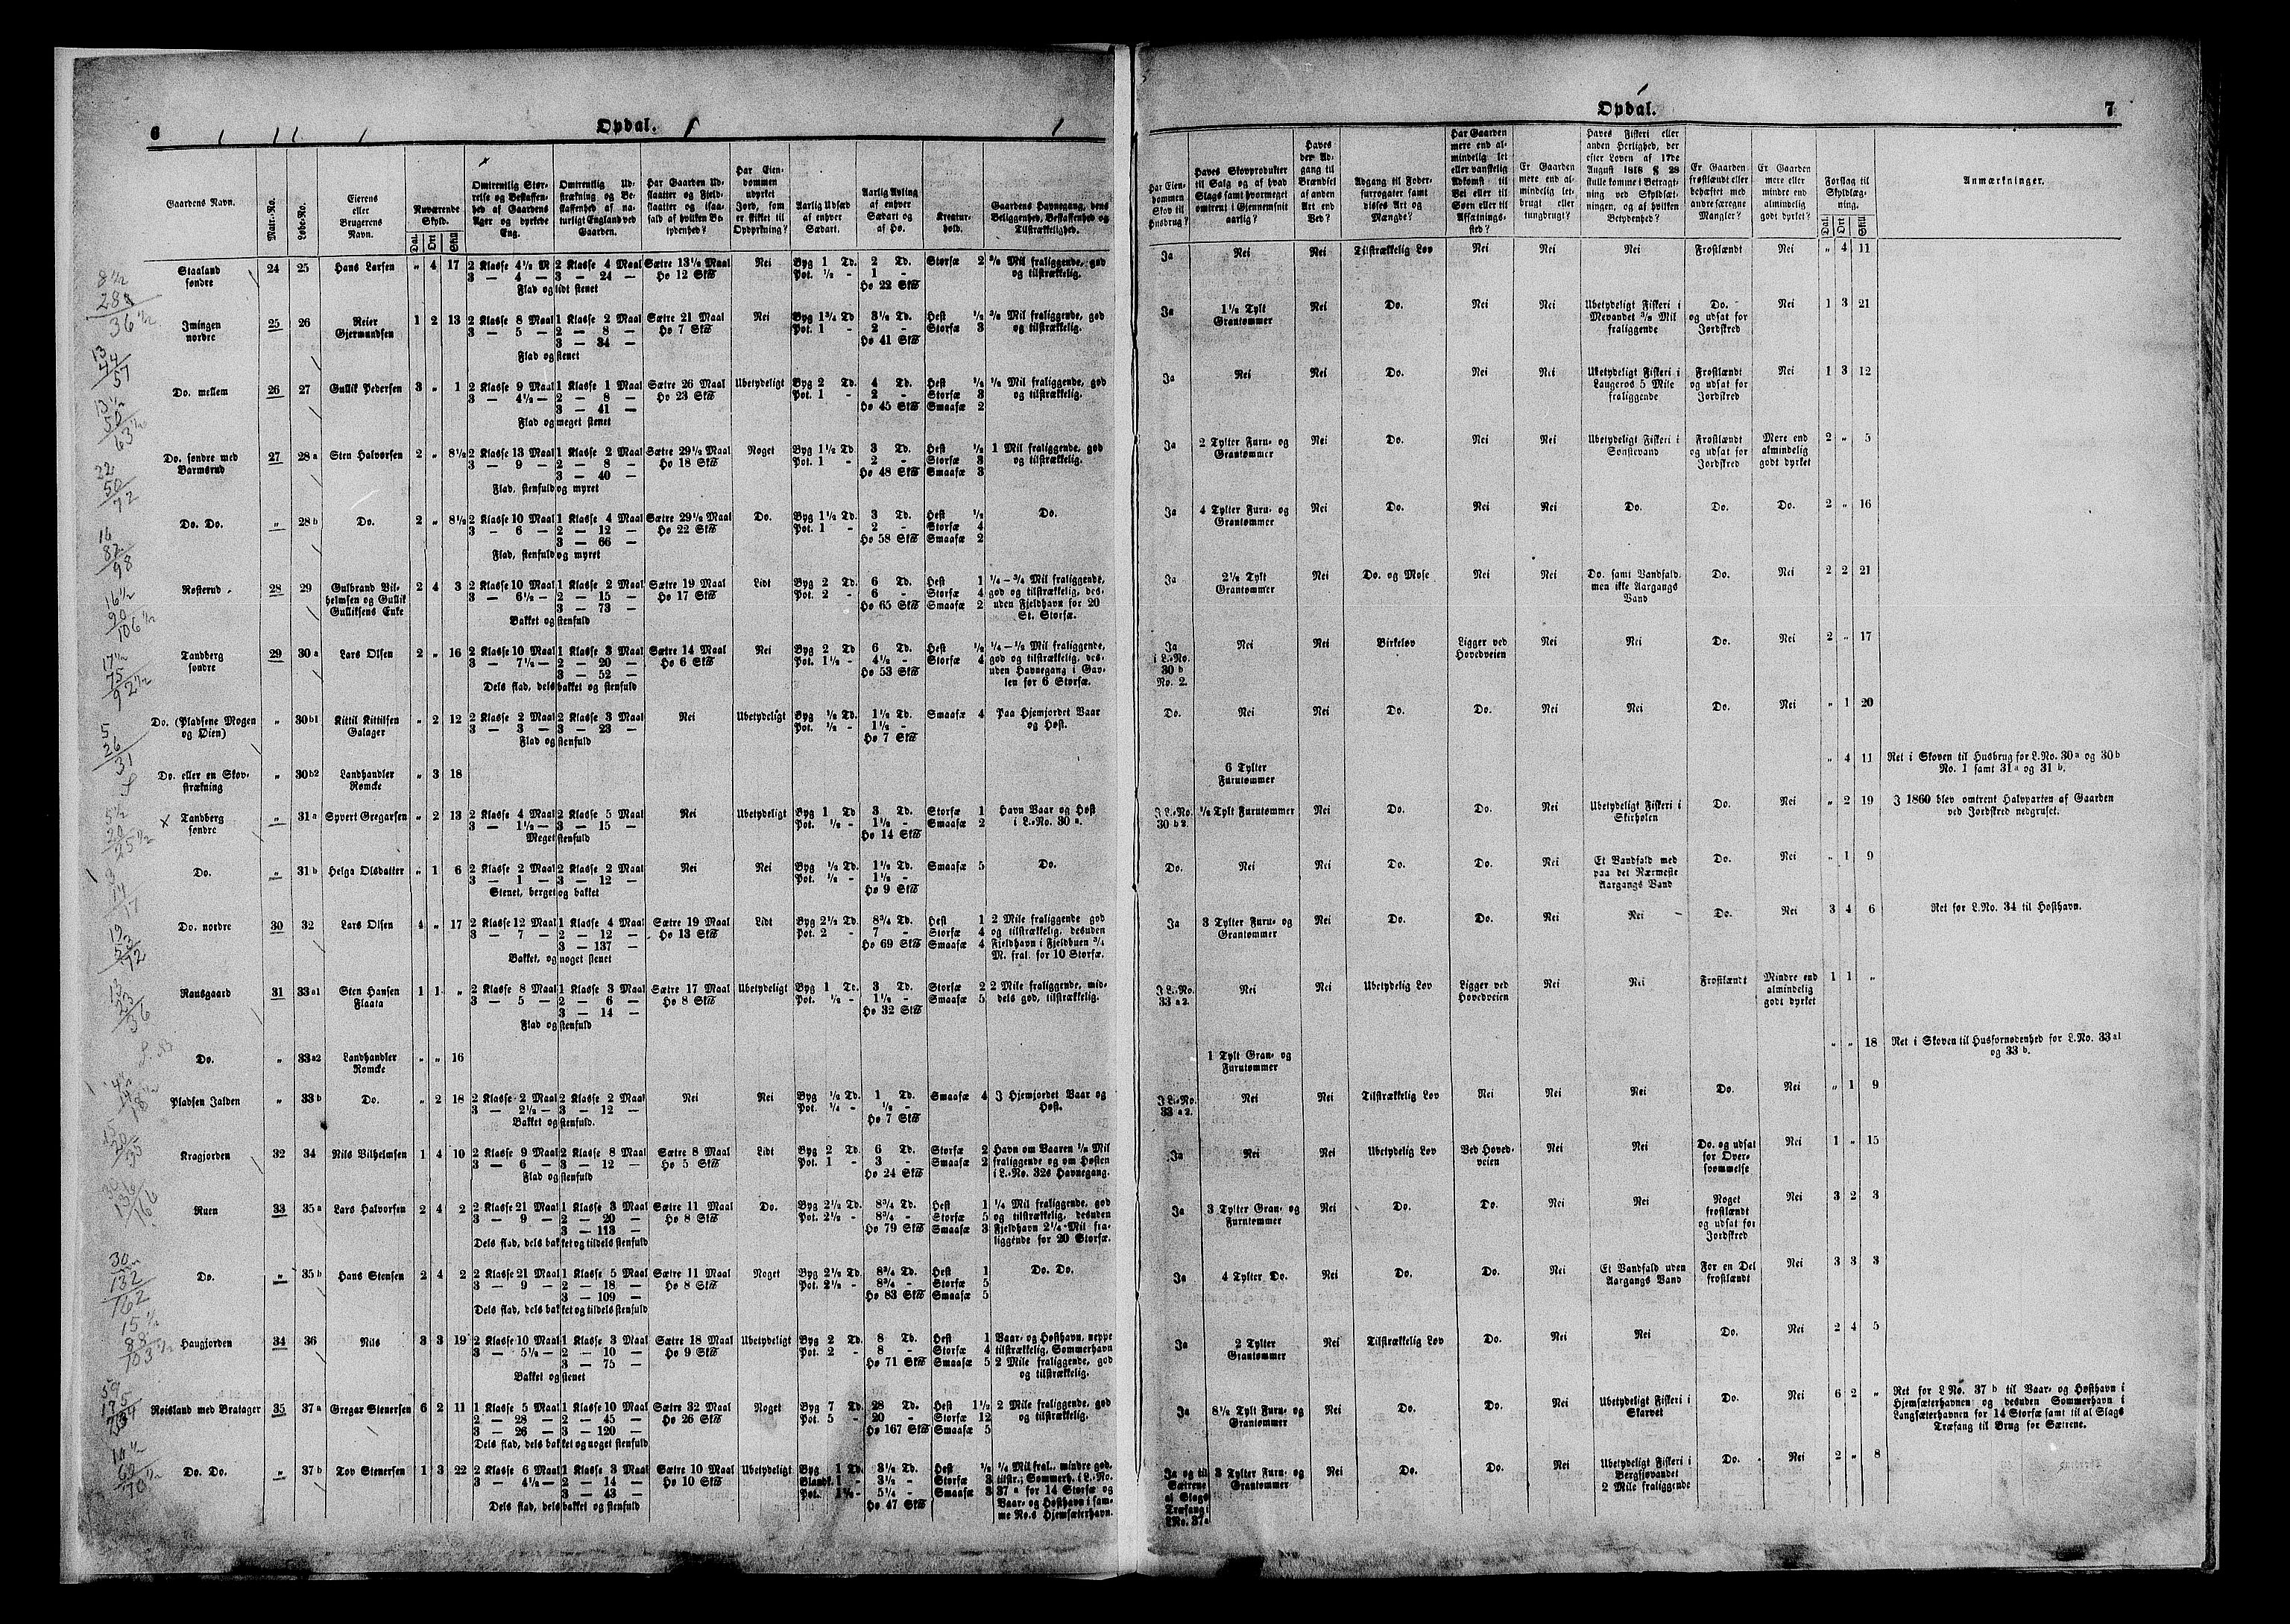 6
Opdal.
Gaardens Navn.
Matr.-No.
Løbe-No.
Eierens eller Brugerens Navn.
Nuværende Skyld.
Dal. Ort Skill
Omtrentlig Størrelse og Beskaffenhed af Gaardens Ager og dyrkede Eng.
Omtrentlig Udstrækning og Beskaffenhed af naturligt England ved Gaarden.
Har Gaarden Udslaatter og Fjeldslaatter og isaafald af hvilken Betydenhed?
Har Eiendommen udyrket Jord, som er skikket til Opdyrkning?
Aarlig Udsæd af enhver Sædart.
Aarlig Avling af enhver Sædart og af Hø.
Kreaturhold.
Gaardens Havnegang, dens Beliggenhed, Beskaffenhed og Tilstrækkelighed.
Staaland søndre 24 25 Hans Larsen „ 4 17 2 Klasse 4½ M 2 Klasse 4 Maal Sætre 13½ Maal Nei Byg 1 Td. 2 Td. Storfæ 2 ⅜ Mil fraliggende, god
3 — 4 — 3 — 24 — Hø 12 Sk℔ Pot. ½ - 1 - og tilstrækkelig.
Flad og lidt stenet Hø 22 Sk℔
Imingen nordre 25 26 Reier Gjermundsen 1 2 13 2 Klasse 8 Maal 1 Klasse 2 Maal Sætre 21 Maal Nei Byg 1¾ Td 3½ Td. Hest ½ ⅜ Mil fraliggende, god
3 — 5 — 2 — 8 — Hø 7 Sk℔ Pot. 1 - 2 - Storfæ 3 og tilstrækkelig.
3 — 34 — Hø 41 Sk℔
Flad og stenet
Do. mellem 26 27 Gullik Pedersen 3 „ 1 2 Klasse 9 Maal 1 Klasse 1 Maal Sætre 26 Maal Ubetydeligt Byg 2 Td. 4 Td. Hest ½ ½ Mil fraliggende, god
3 — 4½ — 2 — 8 — Hø 23 Sk℔ Pot. 1 - 2 - Storfæ 3 og tilstrækkelig.
3 — 41 — Hø 45 Sk℔ Smaafæ 2
Flad og meget stenet
Do. søndre med Barmsrud 27 28 a Sten Halvorsen 2 „ 8½ 2 Klasse 13 Maal 1 Klasse 2 Maal Sætre 29½ Maal Noget Byg 1½ Td 3 Td. Hest ½ 1 Mil fraliggende, god
3 — 9 — 2 — 8 — Hø 18 Sk℔ Pot. 1 - 2 - Storfæ 3 og tilstrækkelig.
3 — 40 — Hø 48 Sk℔ Smaafæ 3
Flad, stenfuld og myret
Do. Do. „ 28 b Do. 2 „ 8½ 2 Klasse 10 Maal 1 Klasse 4 Maal Sætre 29½ Maal Do. Byg 1½ Td. 3 Td. Hest ½ Do.
3 — 6 — 2 — 12 — Hø 22 Sk℔ Pot. 1 - 2 - Storfæ 4
3 — 66 — Hø 58 Sk℔ Smaafæ 2
Flad, stenfuld og myret
Røsterud 28 29 Gulbrand Vilhelmsen og Gullik Gulliksens Enke 2 4 3 2 Klasse 10 Maal 1 Klasse 2 Maal Sætre 19 Maal Lidt Byg 2 Td. 6 Td. Hest 1 ¼ – ¾ Mil fraliggende,
3 — 6½ — 2 — 15 — Hø 17 Sk℔ Pot. 2 - 6 - Storfæ 4 god og tilstrækkelig, des-
3 — 73 — Hø 65 Sk℔ Smaafæ 2 uden Fjeldhavn for 20
Bakket og stenfuld St. Storfæ.
Tandberg søndre 29 30 a Lars Olsen 2 „ 16 2 Klasse 10 Maal 1 Klasse 3 Maal Sætre 14 Maal Nei Byg 2 Td 6 Td. Hest ½ ¼ – ½ Mil fraliggende,
3 — 7½ — 2 — 20 — Hø 6 Sk℔ Pot. 1½ - 4½ - Storfæ 4 god og tilstrækkelig, des-
3 — 52 — Hø 53 Sk℔ uden Havnegang i Gav-
Dels flad, dels bakket og stenfuld len for 6 Storfæ.
Do. (Pladsene Mogen og Øien) „ 30 b1 Kittil Kittilsen Galager „ 2 12 2 Klasse 2 Maal 2 Klasse 3 Maal Nei Ubetydeligt Byg ½ Td. 1½ Td. Smaafæ 4 Paa Hjemjordet Vaar
3 — 3 — 3 — 23 — Pot. ½ - 1½ - og Høst.
Flad og stenfuld Hø 7 Sk℔
Do. eller en Skovstrækning „ 30 b2 Landhandler Romcke „ 3 18
Tandberg søndre „ 31 a Syvert Gregarsen „ 2 13 2 Klasse 4 Maal 2 Klasse 5 Maal Nei Ubetydeligt Byg 1 Td 3 Td. Storfæ 1 Havn Vaar og Høst
3 — 1½ — 3 — 15 — Pot. ½ - 1½ - Smaafæ 2 i L.-No. 30 a.
Meget stenfuld Hø 14 Sk℔
Do. „ 31 b Helga Olsdatter „ 1 6 2 Klasse 2 Maal 2 Klasse 2 Maal Nei Nei Byg ½ Td. 1½ Td. Smaafæ 5 Do.
3 — 1 — 3 — 12 — Pot. ½ - 1½ -
Stenet, berget og bakket Hø 9 Sk℔
Do. nordre 30 32 Lars Olsen 4 „ 17 2 Klasse 12 Maal 1 Klasse 4 Maal Sætre 19 Maal Lidt Byg 2½ Td. 8¾ Td. Hest 1 2 Mile fraliggende god
3 — 7 — 2 — 12 — Hø 13 Sk℔ Pot. 2 - 7 - Storfæ 4 og tilstrækkelig, desuden
3 — 137 — Hø 69 Sk℔ Smaafæ 4 Fjeldhavn i Fjeldbuen ¾
Bakket, og noget stenet M. fral. for 10 Storfæ.
Ransgaard 31 33 a1 Sten Hansen Flaata 1 1 „ 2 Klasse 8 Maal 1 Klasse 3 Maal Sætre 17 Maal Ubetydeligt Byg 1 Td. 3 Td. Storfæ 2 2 Mile fraliggende, mid-
3 — 5 — 2 — 6 — Hø 8 Sk℔ Pot. ½ - 1½ - Smaafæ 5 dels god, tilstrækkelig.
3 — 14 — Hø 32 Sk℔
Flad og stenfuld
Do. „ 33 a2 Landhandler Romcke „ „ 16
Pladsen Jalden „ 33 b Do. „ 2 18 2 Klasse 2 Maal 2 Klasse 2 Maal Nei Nei Byg ½ Td. 1 Td. Smaafæ 4 I Hjemjordet Vaar og
3 — 2½ — 3 — 12 — Pot. ¼ - ½ - Høst.
Bakket og stenfuld. Hø 7 Sk℔
Kragjorden 32 34 Nils Vilhelmsen 1 4 10 2 Klasse 9 Maal 2 Klasse 8 Maal Sætre 8 Maal Lidt Byg 2 Td. 6 Td. Storfæ 2 Havn om Vaaren ½ Mil
3 — 6 — 3 — 12 — Hø 5 Sk℔ Pot. 1 - 3 - Smaafæ 2 fraliggende og om Høsten
Flad og stenfuld Hø 24 Sk℔ i L.-No. 32s Havnegang.
Ruen 33 35 a Lars Halvorsen 2 4 2 2 Klasse 21 Maal 1 Klasse 3 Maal Sætre 11 Maal Do. Byg 2½ Td. 8¾ Td. Hest 1 ¼ Mil fraliggende, god
3 — 9 — 2 — 20 — Hø 8 Sk℔ Pot. 2½ - 8¾ - Storfæ 5 og tilstrækkelig, desuden
3 — 113 — Hø 79 Sk℔ Smaafæ 3 Fjeldhavn 2¼ Mil fra-
Dels flad, dels bakket og tildels stenfuld liggende for 20 Storfæ.
Do. „ 35 b Hans Stensen 2 4 2 2 Klasse 21 Maal 1 Klasse 5 Maal Sætre 11 Maal Noget Byg 2½ Td. 8¾ Td. Hest 1 Do. Do.
3 — 9 — 2 — 18 — Hø 8 Sk℔ Pot. 2½ - 8¾ - Storfæ 5
3 — 109 — Hø 83 Sk℔ Smaafæ 5
Dels flad, dels bakket og tildels stenfuld
Haugjorden 34 36 Nils 3 3 19 2 Klasse 10 Maal 1 Klasse 3 Maal Sætre 18 Maal Ubetydeligt Byg 2 Td. 8 Td. Hest 1 Vaar- og Høsthavn, neppe
3 — 5½ — 2 — 10 — Hø 9 Sk℔ Pot. 2 - 8 - Storfæ 4 tilstrækkelig, Sommerhavn
3 — 75 — Hø 71 Sk℔ Smaafæ 5 2 Mile fraliggende, god
Bakket og stenet og tilstrækkelig.
Røisland med Bratager 35 37 a Gregar Stenersen 6 2 11 1 Klasse 5 Maal 1 Klasse 10 Maal Sætre 32 Maal Noget Byg 7 Td. 28 Td. Hest 1½ 2 Mile fraliggende, god
2 — 28 — 2 — 45 — Hø 26 Sk℔ Pot. 5 - 20 - Storfæ 12 og tilstrækkelig.
3 — 26 — 3 — 120 — Hø 167 Sk℔ Smaafæ 5
Dels flad, dels bakket og noget stenfuld
Do. Do. „ 37 b Tov Stenersen 1 3 22 2 Klasse 6 Maal 1 Klasse 3 Maal Sætre 10 Maal Ubetydeligt Byg 1 Td. 3½ Td. Hest ½ ¼ Mil fral., mindre god,
3 — 4½ — 2 — 14 — Hø 10 Sk℔ Blandk. 1 - 3½ - Storfæ 3 tilstr.; Sommerh. i L.-No.
3 — 43 — Pot. 1½ - 5¼ - Smaafæ 3 37 a for 14 Storfæ og
Dels flad, dels bakket og stenfuld Hø 47 Sk℔ Vaar- og Høsthavn i sam-
me No.s Hjemsæterhavn.
Opdal.
7
Har Eiendommen Skov til Husbrug?
Haves Skovprodukter til Salg og af hvad Slags samt hvormeget omtrent i Gjennemsnit aarlig?
Haves der Adgang til Brændsel af anden Art end Ved?
Adgang til Fodersurrogater samt disses Art og Mængde?
Har Gaarden mere end almindelig let eller vanskelig Adkomst til Vei eller til Søen eller til Afsætningssted?
Er Gaarden mere end almindelig letbrugt eller tungbrugt?
Haves Fiskeri eller anden Herlighed, der efter Loven af 17de August 1818 § 28 skulle komme i Betragtning ved Skyldsætningen, og af hvilken Betydenhed?
Er Gaarden frostlændt eller behæftet med andre særegne Mangler?
Er Gaarden mere eller mindre end almindelig godt dyrket?
Forslag til Skyldlægning.
Dal. Ort Skill
Anmærkninger.
Ja Nei Nei Tilstrækkelig Løv Nei Nei Nei Frostlændt Nei „ 4 11
Ja 1½ Tylt Grantømmer Nei Do. Nei Nei Ubetydeligt Fiskeri i Mevandet ⅜ Mil fraliggende Do. og udsat for Jordskred Nei 1 3 21
Ja Nei Nei Do. Nei Nei Ubetydeligt Fiskeri i Laugeros 5 Mile fraliggende Frostlændt og udsat for Jordskred Nei 1 3 12
Ja 2 Tylter Furu- og Grantømmer Nei Do. Nei Nei Ubetydeligt Fiskeri i Sønstevand Frostlændt og udsat for Jordskred Mere end almindelig godt dyrket 2 „ 5
Ja 4 Tylter Furu- og Grantømmer Nei Do. Nei Nei Do. Do. Do. 2 „ 16
Ja 2½ Tylt Grantømmer Nei Do. og Mose Nei Nei Do. samt Vandfald, men ikke Aargangs Vand Do. Nei 2 2 21
Ja i L.-No. 30 b No. 2. Nei Nei Birkeløv Ligger ved Hovedveien Nei Nei Do. Nei 2 „ 17
Do. Nei Nei Do. Do. Nei Nei Do. Nei „ 1 20
6 Tylter Furutømmer „ 4 11 Ret i Skoven til Husbrug for L.No. 30 a og 30 b No. 1 samt 31 a og 31 b.
I L.-No. 30 b 2. ½ Tylt Furutømmer Nei Do. Do. Nei Ubetydeligt Fiskeri i Skirhølen Do. Nei „ 2 19 I 1860 blev omtrent Halvparten af Gaarden ved Jordskred nedgruset.
Do. Nei Nei Do. Do. Nei Et Vandfald med paa det Nærmeste Aargangs Vand Do. Nei „ 1 9
Ja 3 Tylter Furu- og Grantømmer Nei Do. Do. Nei Nei Do. Nei 3 4 6 Ret for L.No. 34 til Høsthavn.
I L.-No. 33 a 2. Nei Nei Ubetydelig Løv Ligger ved Hovedveien Nei Nei Frostlændt Mindre end almindelig godt dyrket 1 1 „
1 Tylt Gran- og Furutømmer „ „ 18 Ret i Skoven til Husfornødenhed for L.No. 33 a1 og 33 b.
I L.-No. 33 a 2. Nei Nei Tilstrækkelig Løv Nei Nei Nei Do. Nei „ 1 9
Ja Nei Nei Ubetydelig Løv Ved Hovedveien Nei Nei Do. og udsat for Oversvømmelse Nei 1 „ 15
Ja 3 Tylter Gran- og Furutømmer Nei Do. Do. Nei Nei Noget frostlændt og udsat for Jordskred Nei 3 2 3
Ja 4 Tylter Do. Nei Do. Do. Nei Et Vandfald uden Aargangs Vand For en Del frostlændt Nei 3 3 3
Ja 2 Tylter Grantømmer Nei Tilstrækkelig Løv Do. Nei Nei Do. Nei 2 4 5
Ja 8½ Tylt Furu- og Grantømmer Nei Do. Do. Nei Ubetydeligt Fiskeri i Skarvet Do. Nei 6 2 „ Ret for L No. 37 b til Vaar- og Høsthavn i Hjemsæterhavnen og desuden Sommerhavn i Langsæterhavnen for 14 Storfæ samt til al Slags Træfang til Brug for Sætrene.
Ja og til Sætrene al Slags Træfang i L.No. 37 a 3 Tylter Furu- og Grantømmer Nei Do. Do. Nei Ubetydeligt Fiskeri i Bergsjøvandet 2 Mile fraliggende Do. Nei 2 „ 8